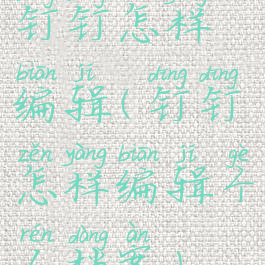 钉钉怎样
biān jí dīng dīng
编辑(钉钉
zěn yàng biān jí gè
怎样编辑个
rén dàng àn